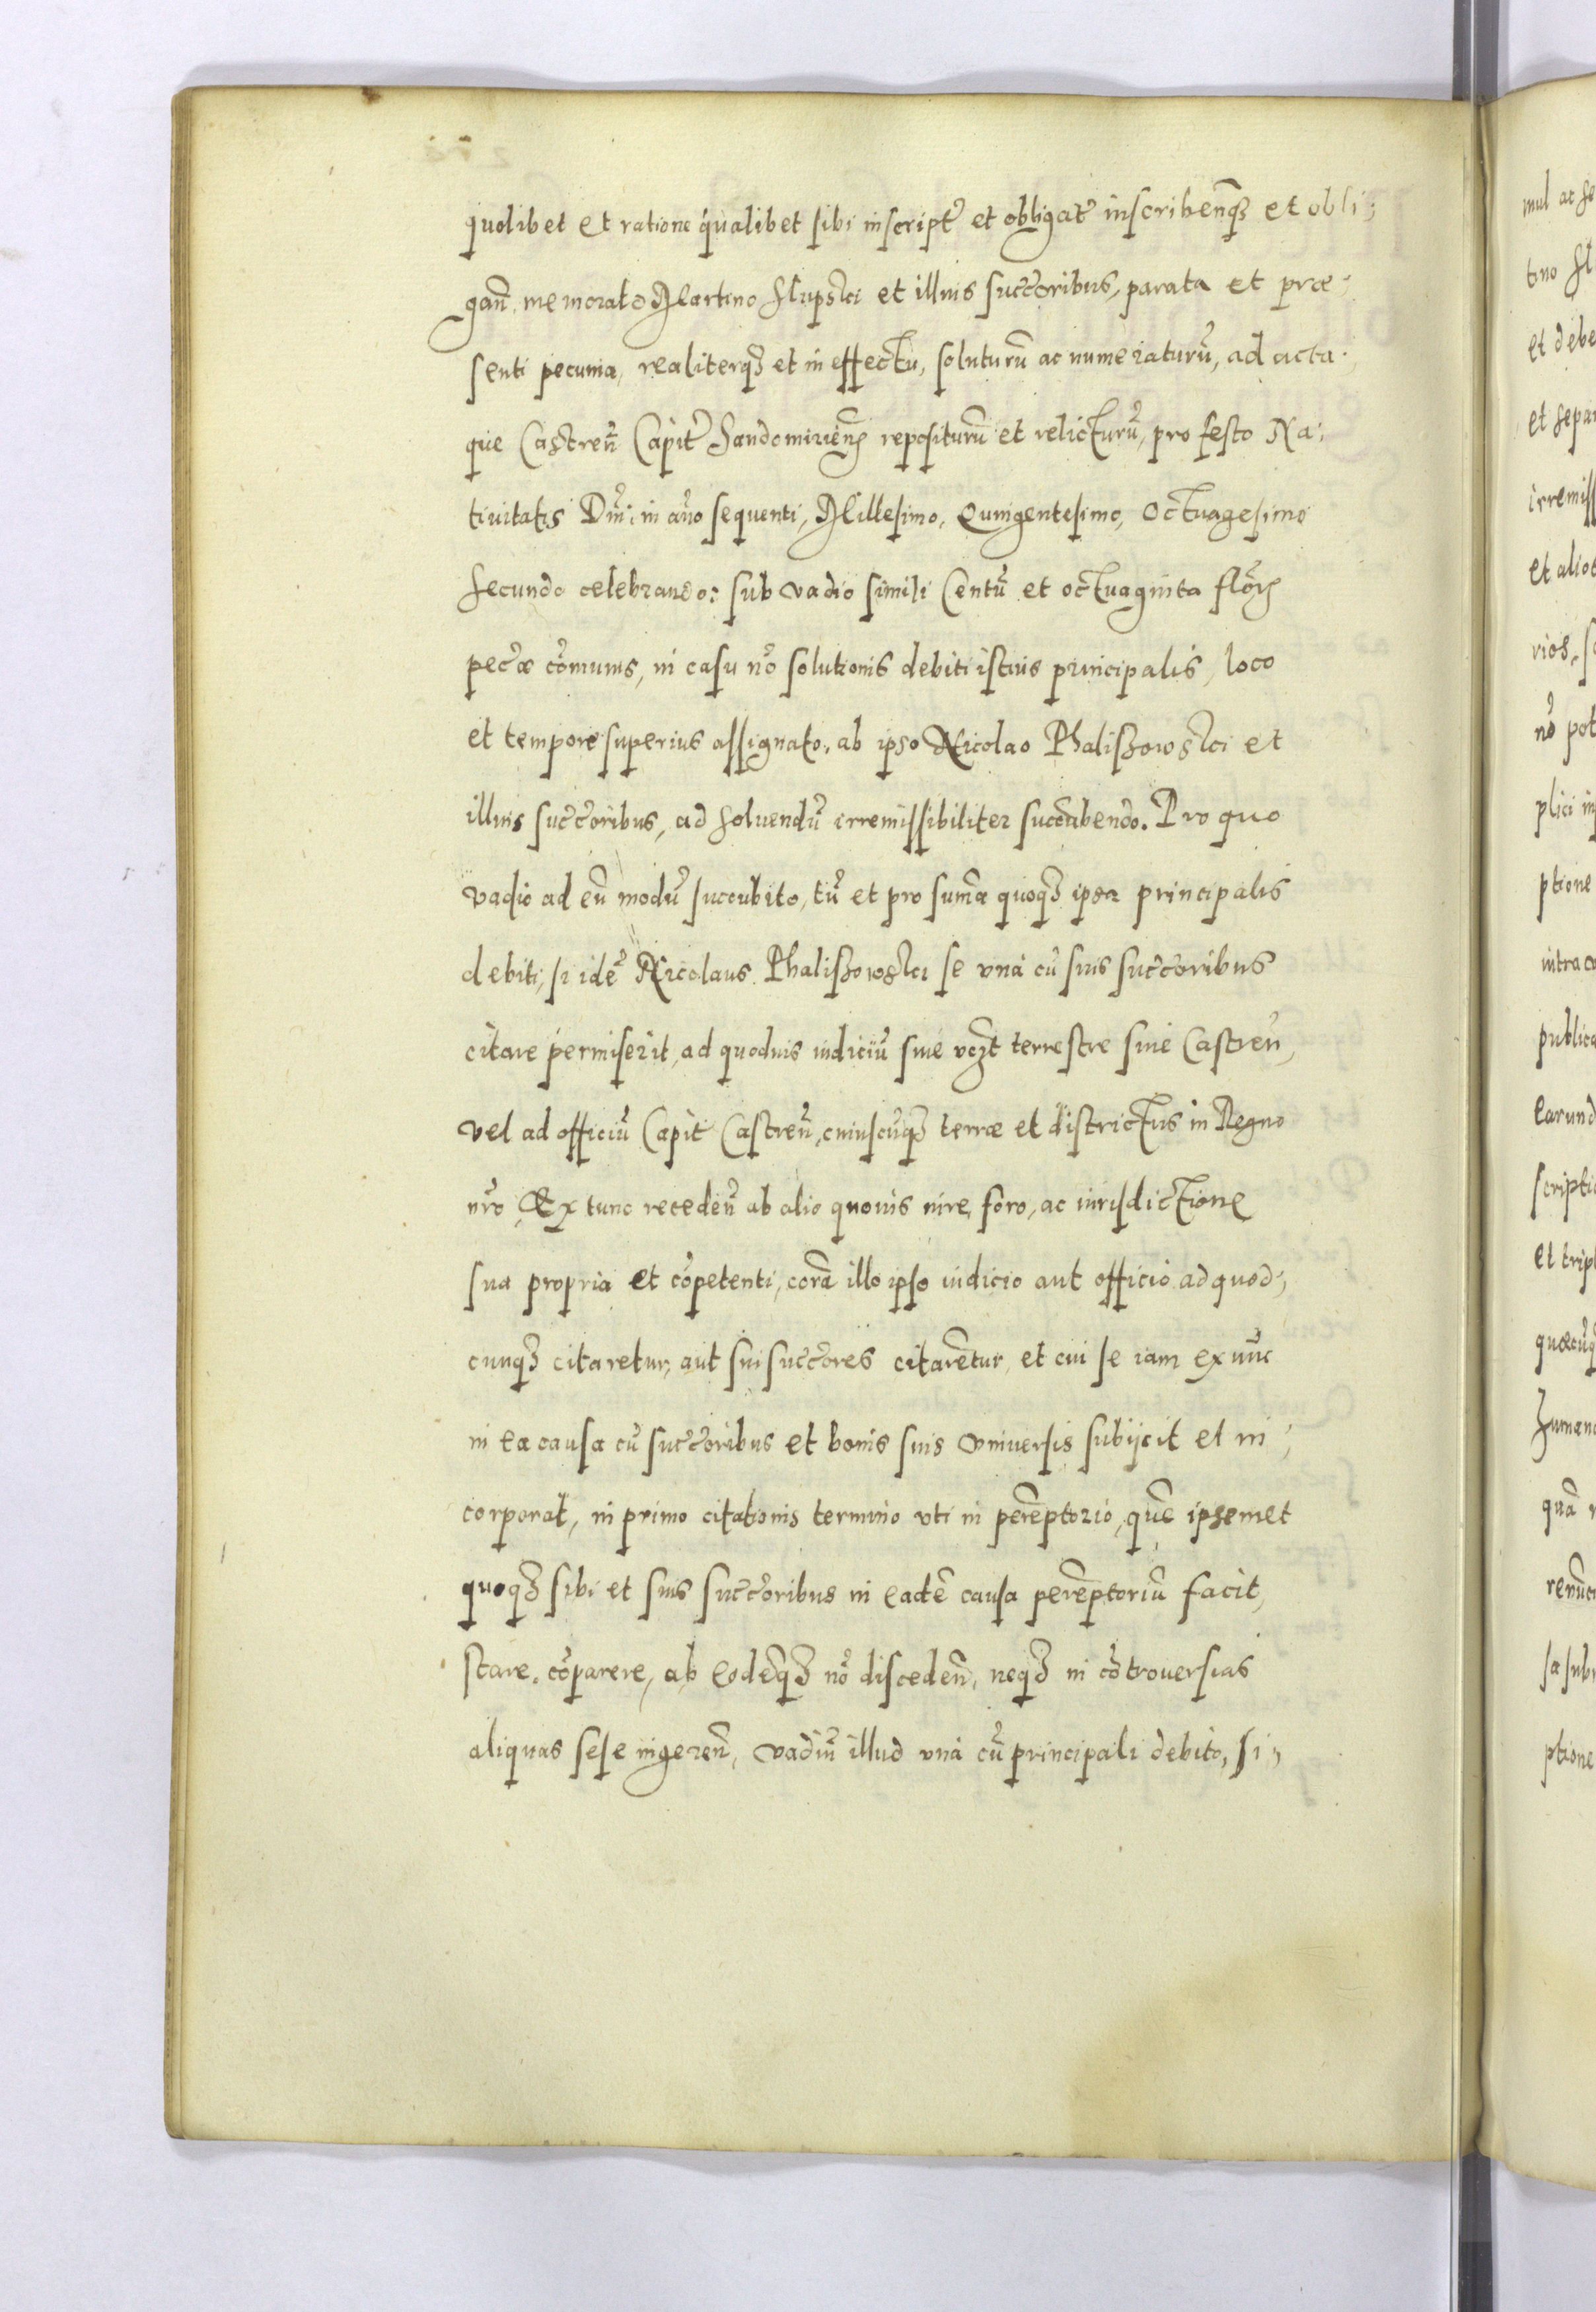 quolibet et ratione qualibet sibi inscript̃ et obligat̃ inscribenq̃ʒ et obli,
gan̄ memorato Martino Slupski et illius succ̃oribus, parata et præ,
senti pecunia, realiterqʒ et in effectu, soluturũ ac numeraturũ, ad acta,
que Castren̄ Capit̃ Sandomirien̄ repositurũ et relicturũ, pro festo Na,
tiuitatis Dñi in año sequenti, Millesimo, Quingentesimo, Octuagesimo
Secundo celebrando: sub vadio simili Centũ et octuaginta flor̃
pec̃æ cõmunis, in casu nõ solutionis debiti istius principalis, loco
et tempore superius assignato, ab ipso Nicolao Phaliszowski et
illius succ̃oribus, ad soluendũ irremissibiliter succũbendo. Pro quo
vadio ad eũ modũ succubito, tũ et pro sum̃a quoqʒ ip̃a principalis
debiti, si idẽ Nicolaus Phaliszowski se vnà cũ suis succ̃oribus
citare permiserit, ad quoduis iudiciũ siue vcʒt terrestre siue Castren̄,
vel ad officiũ Capit̃ Castren̄, cuiuscũqʒ terræ et districtus in Regno
nr̃o, Ex tunc receden̄ ab alio quouis iure, foro, ac iurisdictione
sua propria et cõpetenti, corã illo ipso iudicio aut officio ad quod,
cunqʒ citaretur, aut sui succ̃ores citarẽtur, et cui se iam ex nũc
in ea causa cũ succ̃oribus et bonis suis vniuersis subijcit et in,
corporat, in primo citationis termino vti in perẽptorio, quẽ ipsemet
quoqʒ sibi et suis succ̃oribus in eadẽ causa perẽptoriũ facit,
stare, cõparere, ab eodẽqʒ nõ disceden̄, neqʒ in cõtrouersias
aliquas sese ingeren̄, vadiũ illud vnà cũ principali debito, si,